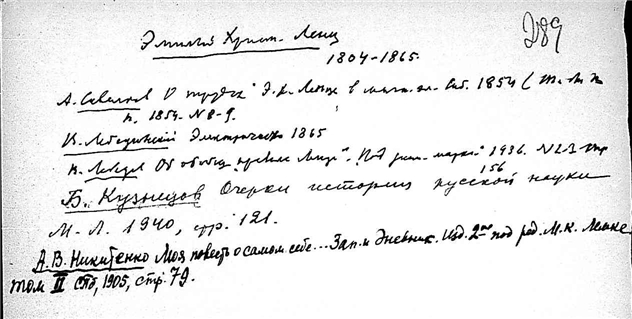 289
Эмилий Христ. Ленц
1804-1865.
А. Савельев О трудах Э. Х. Ленца в 1854 (
1854 - N 8-9.
К. Лебединский Электричество 1865
В. Лебедев Об "Ленца". "Под марк." 1936. N 2-3 стр
156
Б. Кузнецов Очерки истории русской науки
М-Л. 1940, стр. 121.
А. В. Никитенко Моя повесть о самом себе... Зап. и дневник. Изд. 2ое под ред. М. К. Лемке
том II СПб, 1905, стр. 79.